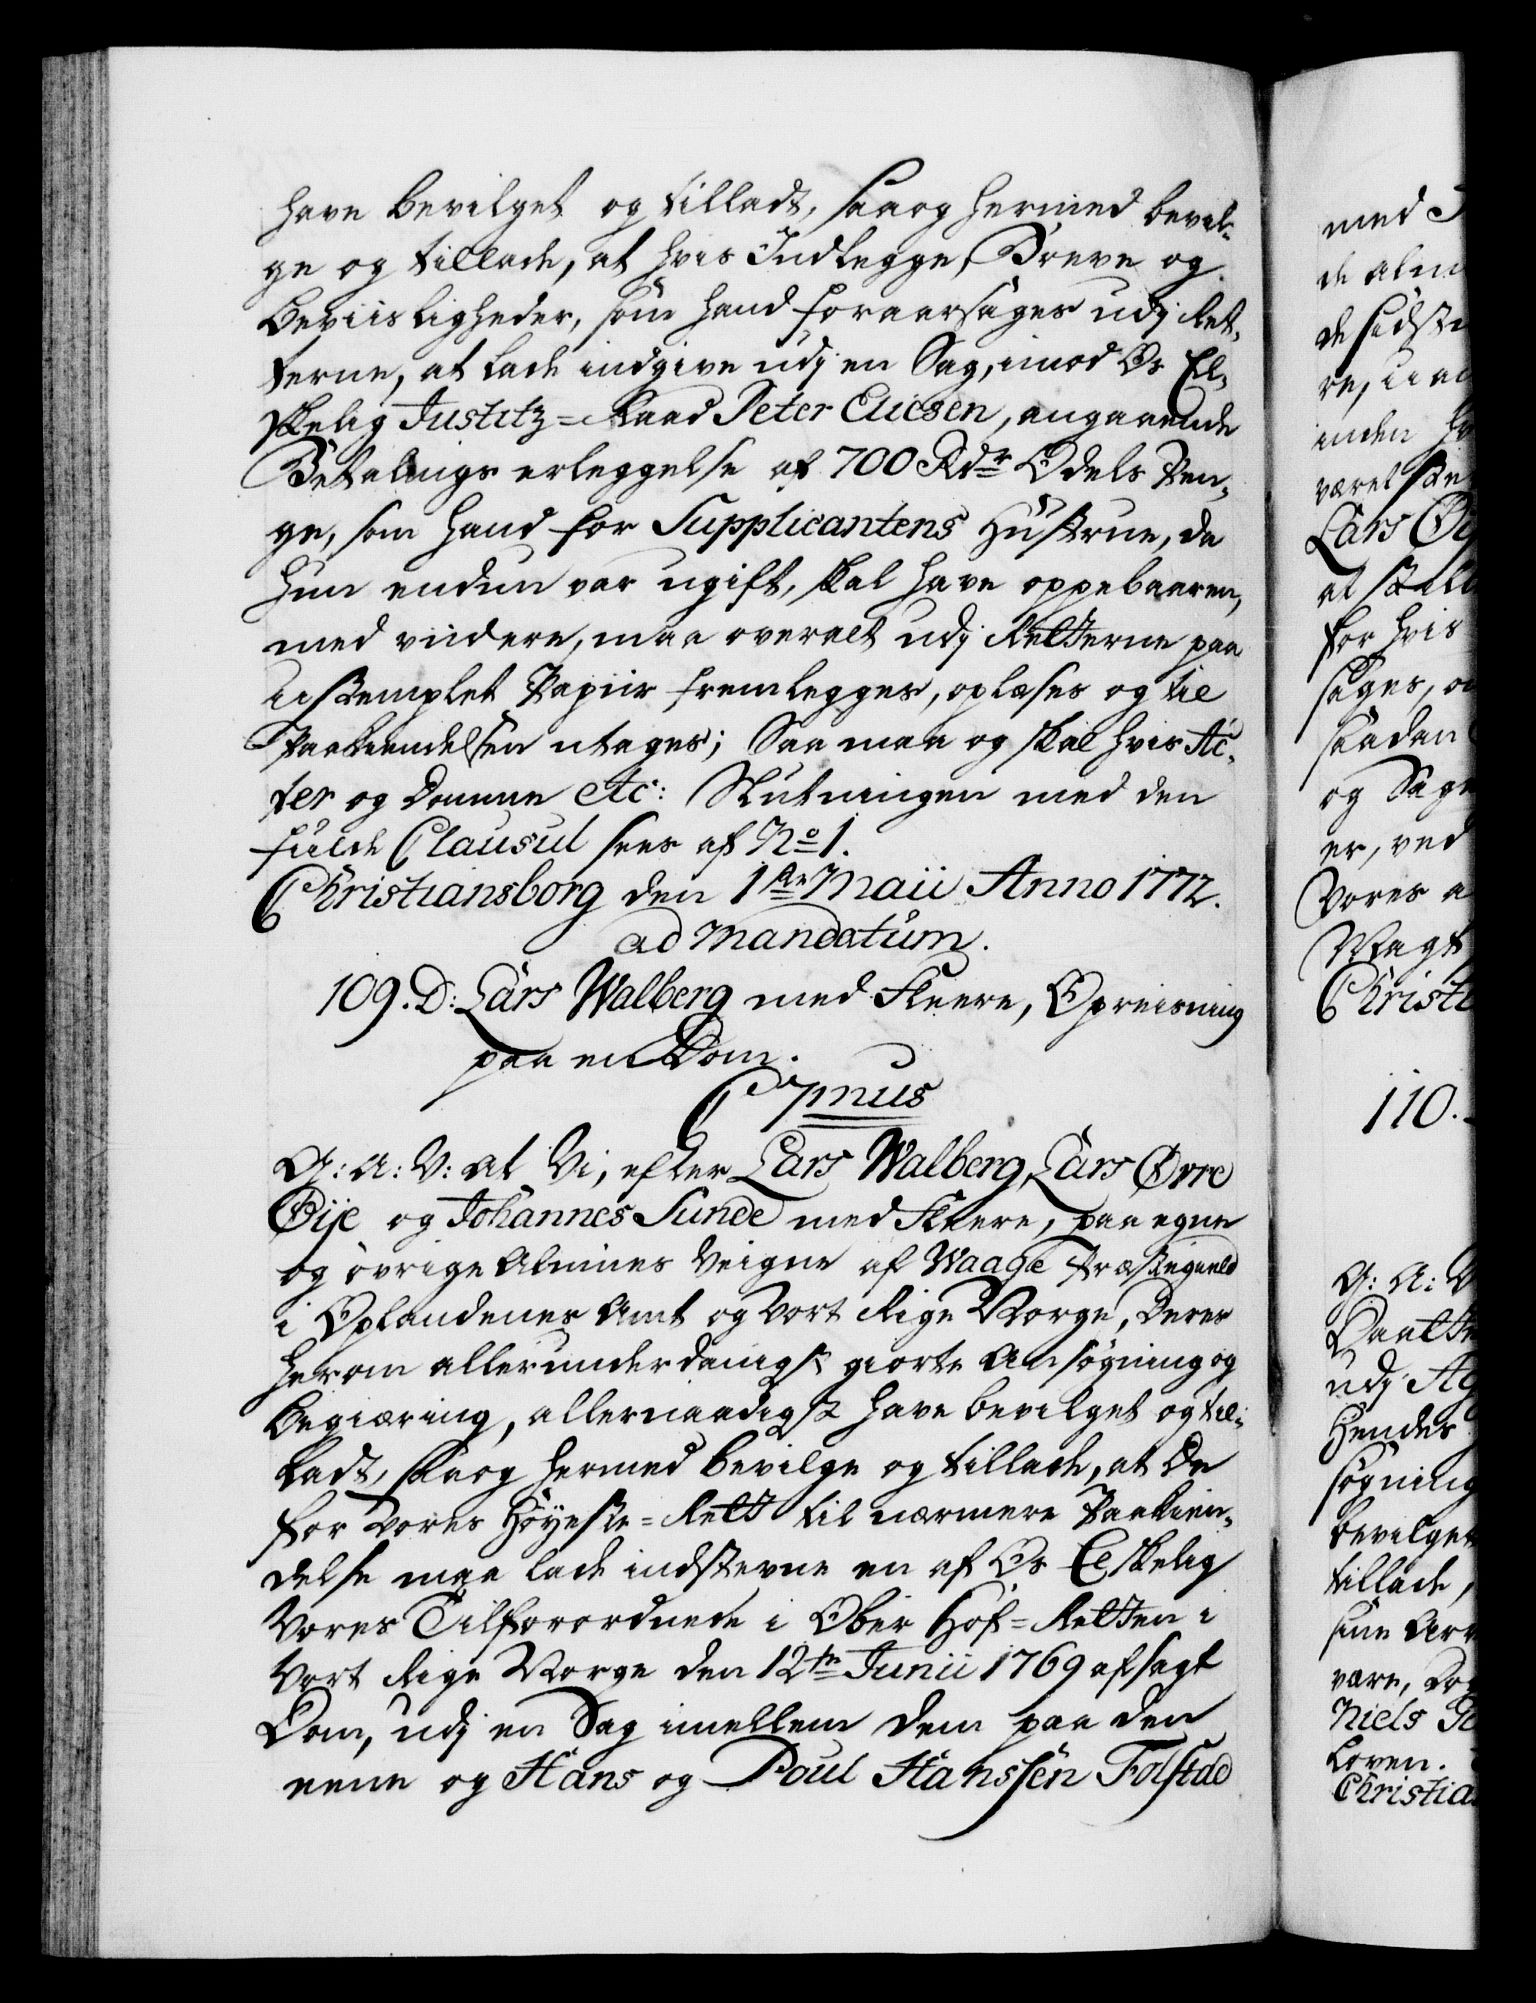 have bevilget og tilladt, saa og hermed bevil-
ge og tillade, at hvis Indlegge, Breve og
Beviisligheder, som hand foraarsages udj Ret-
terne, at lade indgive udj en Sag, imod Os El-
skelig Justitz=Raad Peter Elieson, angaaende
Betalings erleggelse af 700 Rdr Odels Pen-
ge, som hand for Supplicantens Hustrue, da
hun endnu var ugift, skal have oppebaaren,
med viidere, maa overalt udj Retterne paa
ustemplet Papiir fremlegges, oplæses og til
Paakiendelsen udtages; Saa maa og skal hvis Ac-
ter og Domme etc: Slutningen med den
fulde Clausul sees af No 1.
Christiansborg den 1ste Maii Anno 1772.
ad Mandatum.
109. D: Lars Walberg med Fleere, Opreisning
paa en Dom.
C 7mus
G: A: V: at Vi, efter Lars Walberg, Lars Øvre
Øije og Johannes Sunde med Fleere, paa egne
og øvrige Almues Veigne af Waage Præstegield
i Oplandenes Amt og Vort Rige Norge, Deres
herom allerunderdanigst giorte Ansøgning og
Begiæring, allernaadigst have bevilget og til-
ladt, saa og hermed bevilge og tillade, at De
for Vores Høyeste=Rett til nærmere Paakien-
delse maa lade indstevne en af Os Elskelig
Vores Tilforordnede i Ober Hof=Retten i
Vort Rige Norge den 12te Junii 1769 afsagt
Dom, udj en Sag imellem Dem paa den
eene og Hans og Poul Hanssen Folstad
med
de alm
de sidste
re,
inden
været
Lars
at
for hvis
sages,
saadan
og Sag
er, ved
Vores a
Magt
Christi
110.
G: A: V
udj
Hendes
søgning
bevilget
tillade,
sine Arv
være,
Niels
Loven.
Christia